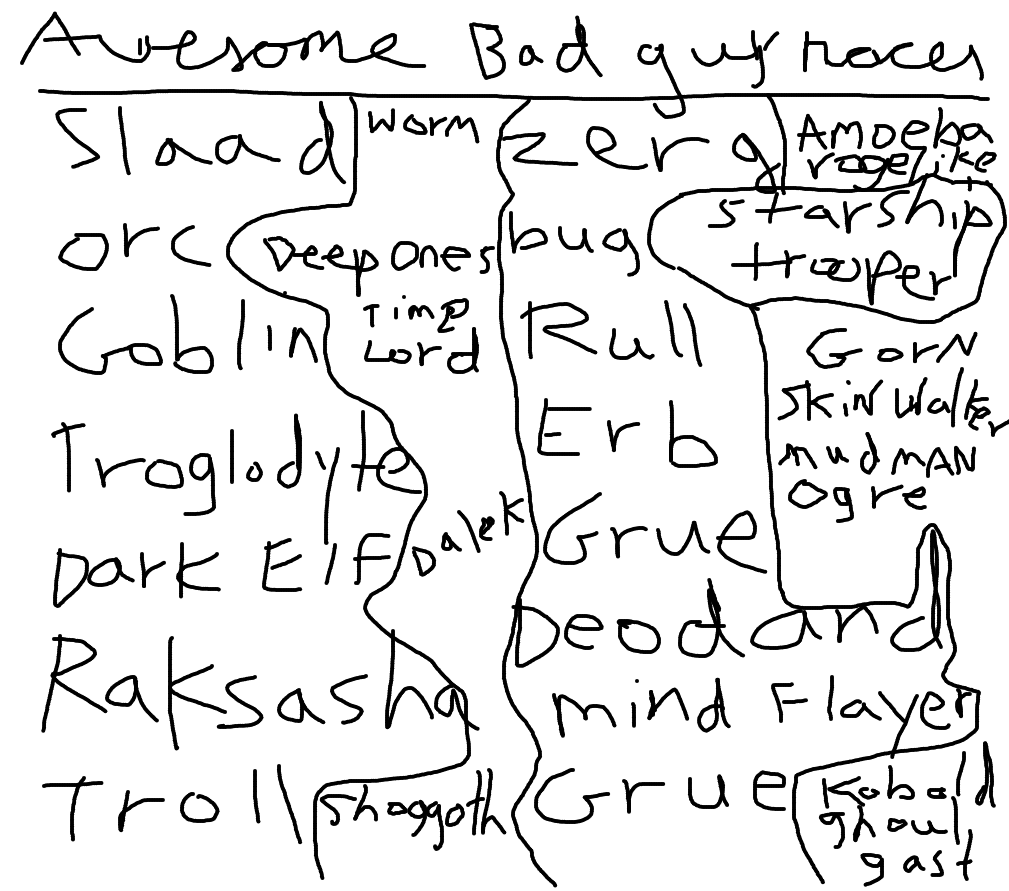 Awesome Bad guy races
Slaad
orc
Goblin
Troglodyte
Dark Elf
Raksasha
Troll
worm
Deep ones
Time
Lord
Dalek
Shoggoth
zerg
bug
Rull
Erb
Grue
Deodand
mind Flayer
Grue
Amoeba
rogelike
starship
trooper
Gorn
Skin walker
mudman
ogre
Kobold
ghoul
gast